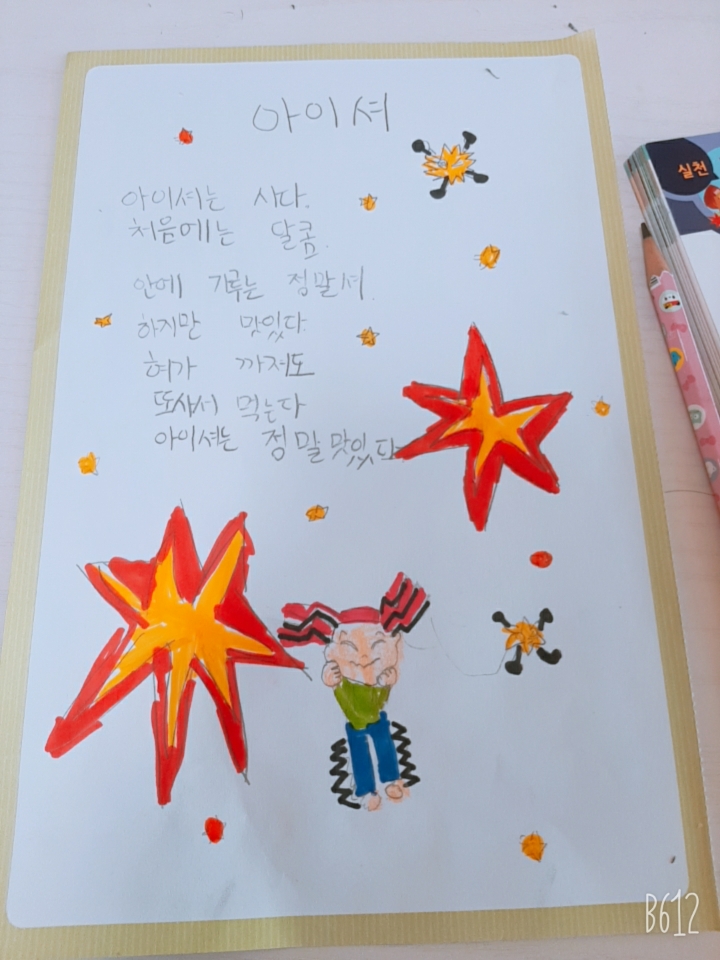 아이셔
아이셔는 시다.
처음에는 달콤.
안에 가루는 정말셔.
하지만 맛있다.
혀가 까져도
또사서 먹는다
아이셔는 정말맛있다
실천
B612